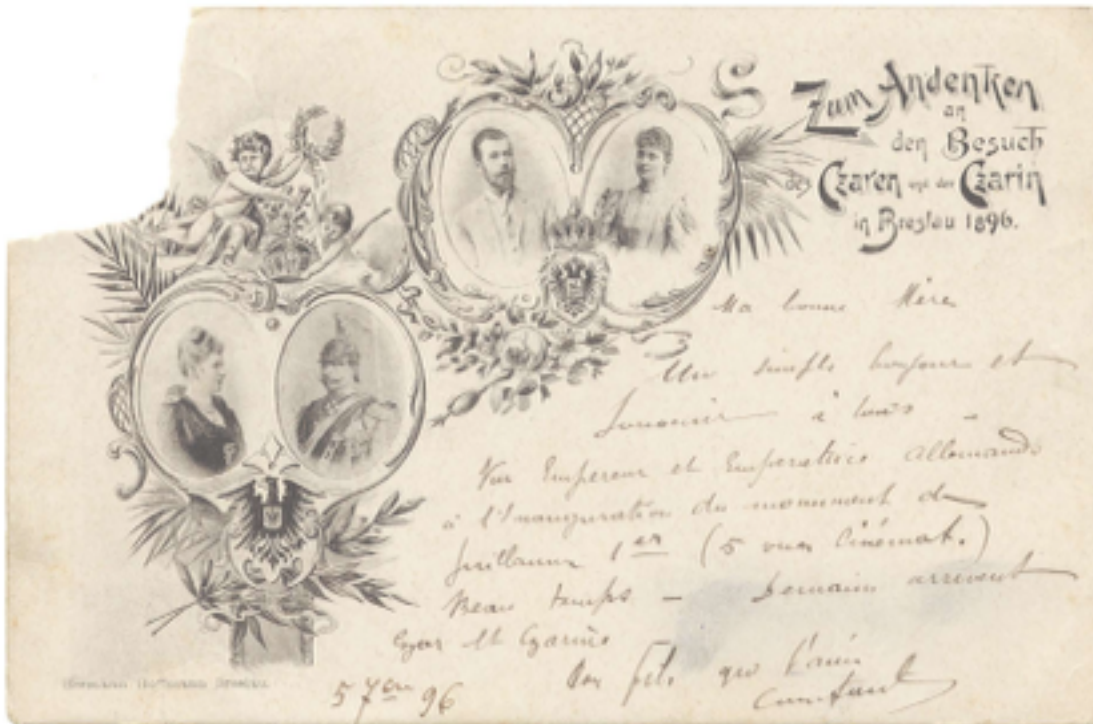 Zum Andenken
an
den Besuch
des Czaren und der Czarin
in Breslau 1896.
Ma bonne Mère
Un simple bonjour et
Souvenir à tous –
Vu Empereur et Emperatrice Allemands
à l'Inauguration du monument de
Guillaume 1er (5 vues Cinémat.)
Beau temps – Demain arrivent
Czar et Czarine
Ton fils qui t'aime
Constant
5 7bre 96
Hermann Hoffmann Breslau